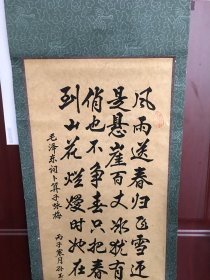 風雨送春归飞雪迎
是悬崖百丈冰犹有
俏也不争春只把春
到山花烂熳时她在
毛泽东词卜算子咏梅
丙子寒月